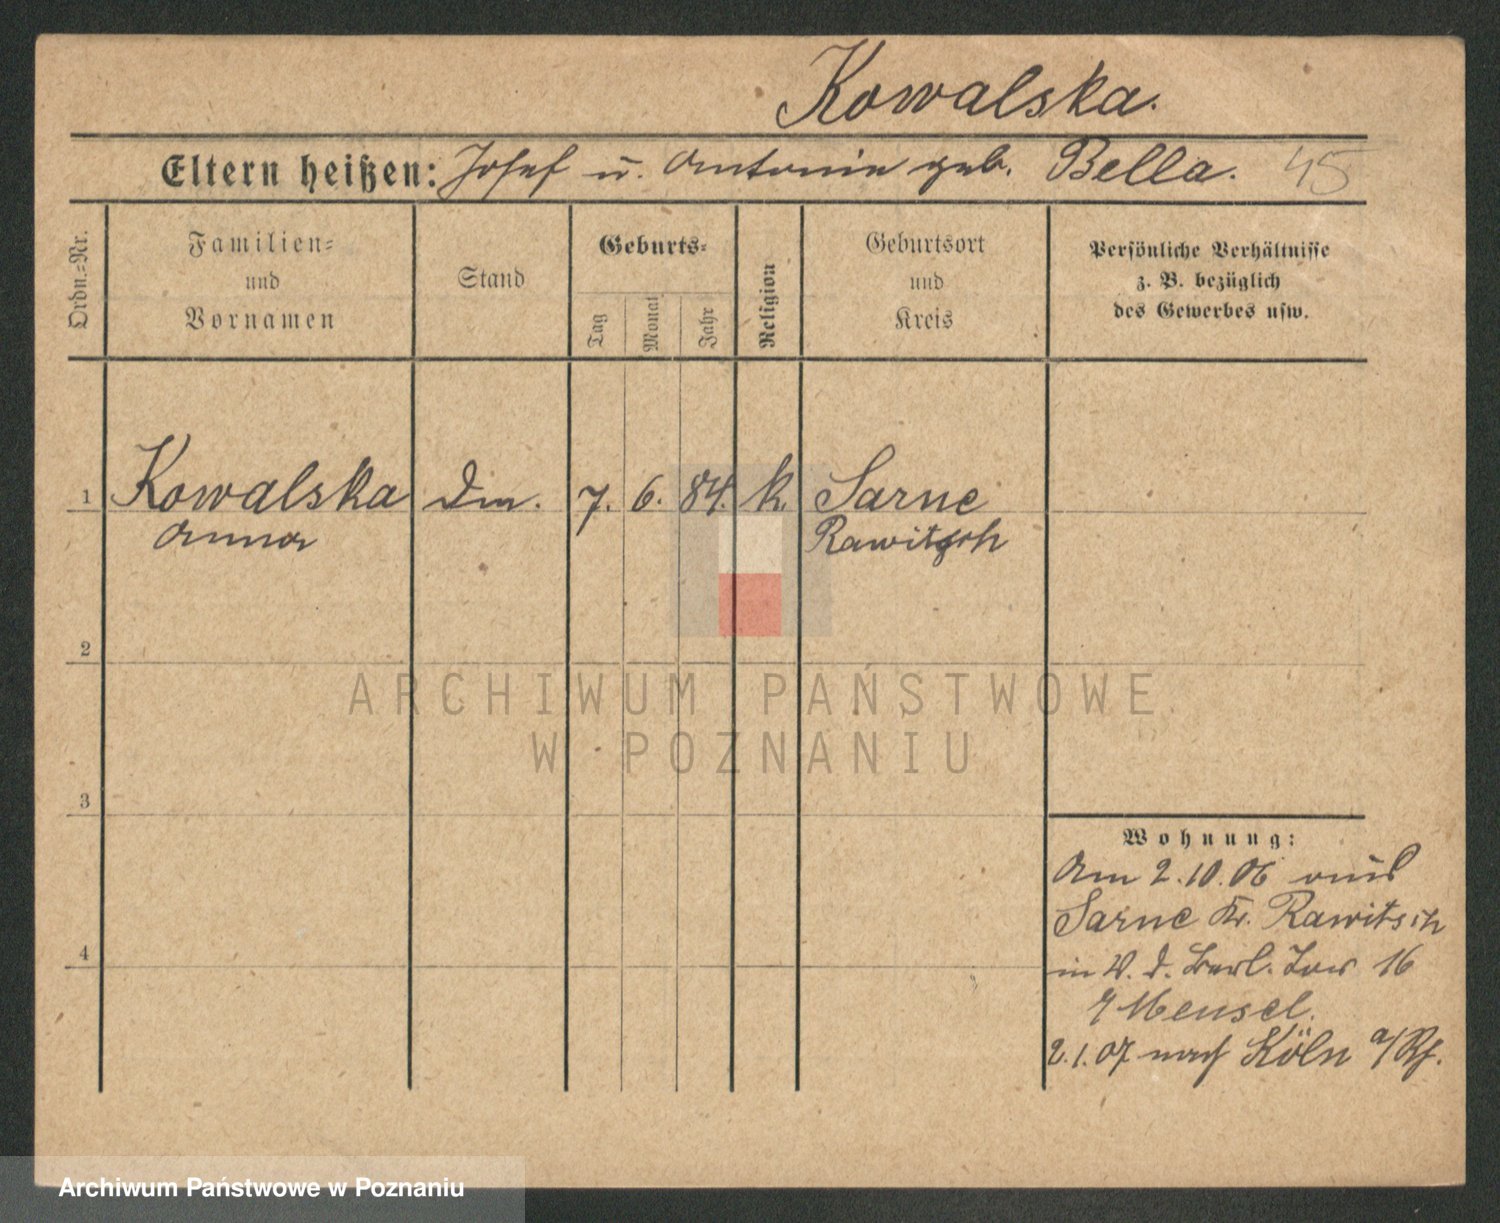 Kowalska.
Eltern heißen: Josef u. Antonie geb. Bella. 45
Ordn.=Nr.
Familien=
und
Vornamen
Stand
Geburts=
Tag
Monat
Jahr
Religion
Geburtsort
und
Kreis
Persönliche Verhältnisse
z. B. bezüglich
des Gewerbes usw.
1 Kowalska Dm. 7. 6. 84. k. Sarne
Anna Rawitsch
2
ARCHIWUM PAŃSTWOWE
W POZNANIU
3
Wohnung:
Am 2.10.06 aus
Sarne Kr. Rawitsch
4
in W. d. Berl. Tor 16
Mensel.
2.1.07 nach Köln a/Rh.
Archiwum Państwowe w Poznaniu